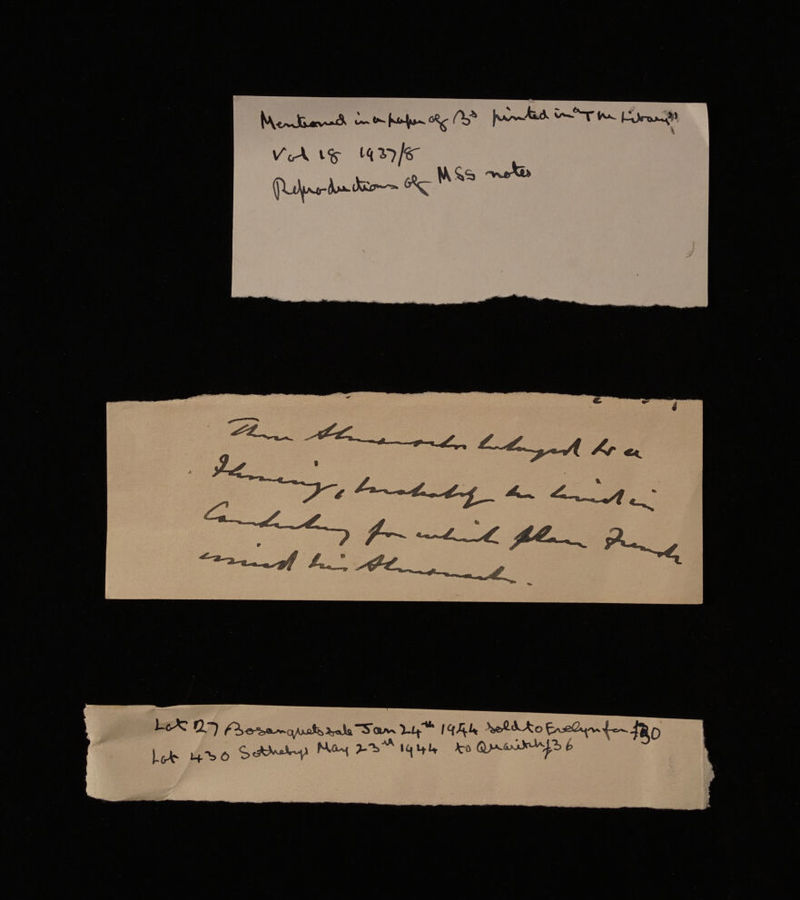 Mentioned in a paper of B's printed in "The Library"
Vol 18 1937/8
Reproductions of MSS notes
These Almanacks belonged to a
Fleming, probably he lived in
Canterbury for which place French
issued his Almanacks.
Lot 27 Bosanquet sale Jan 24th 1944 sold to Evelyn for £30
Lot 430 Sothebys May 23rd 1944 to Quaritch £36